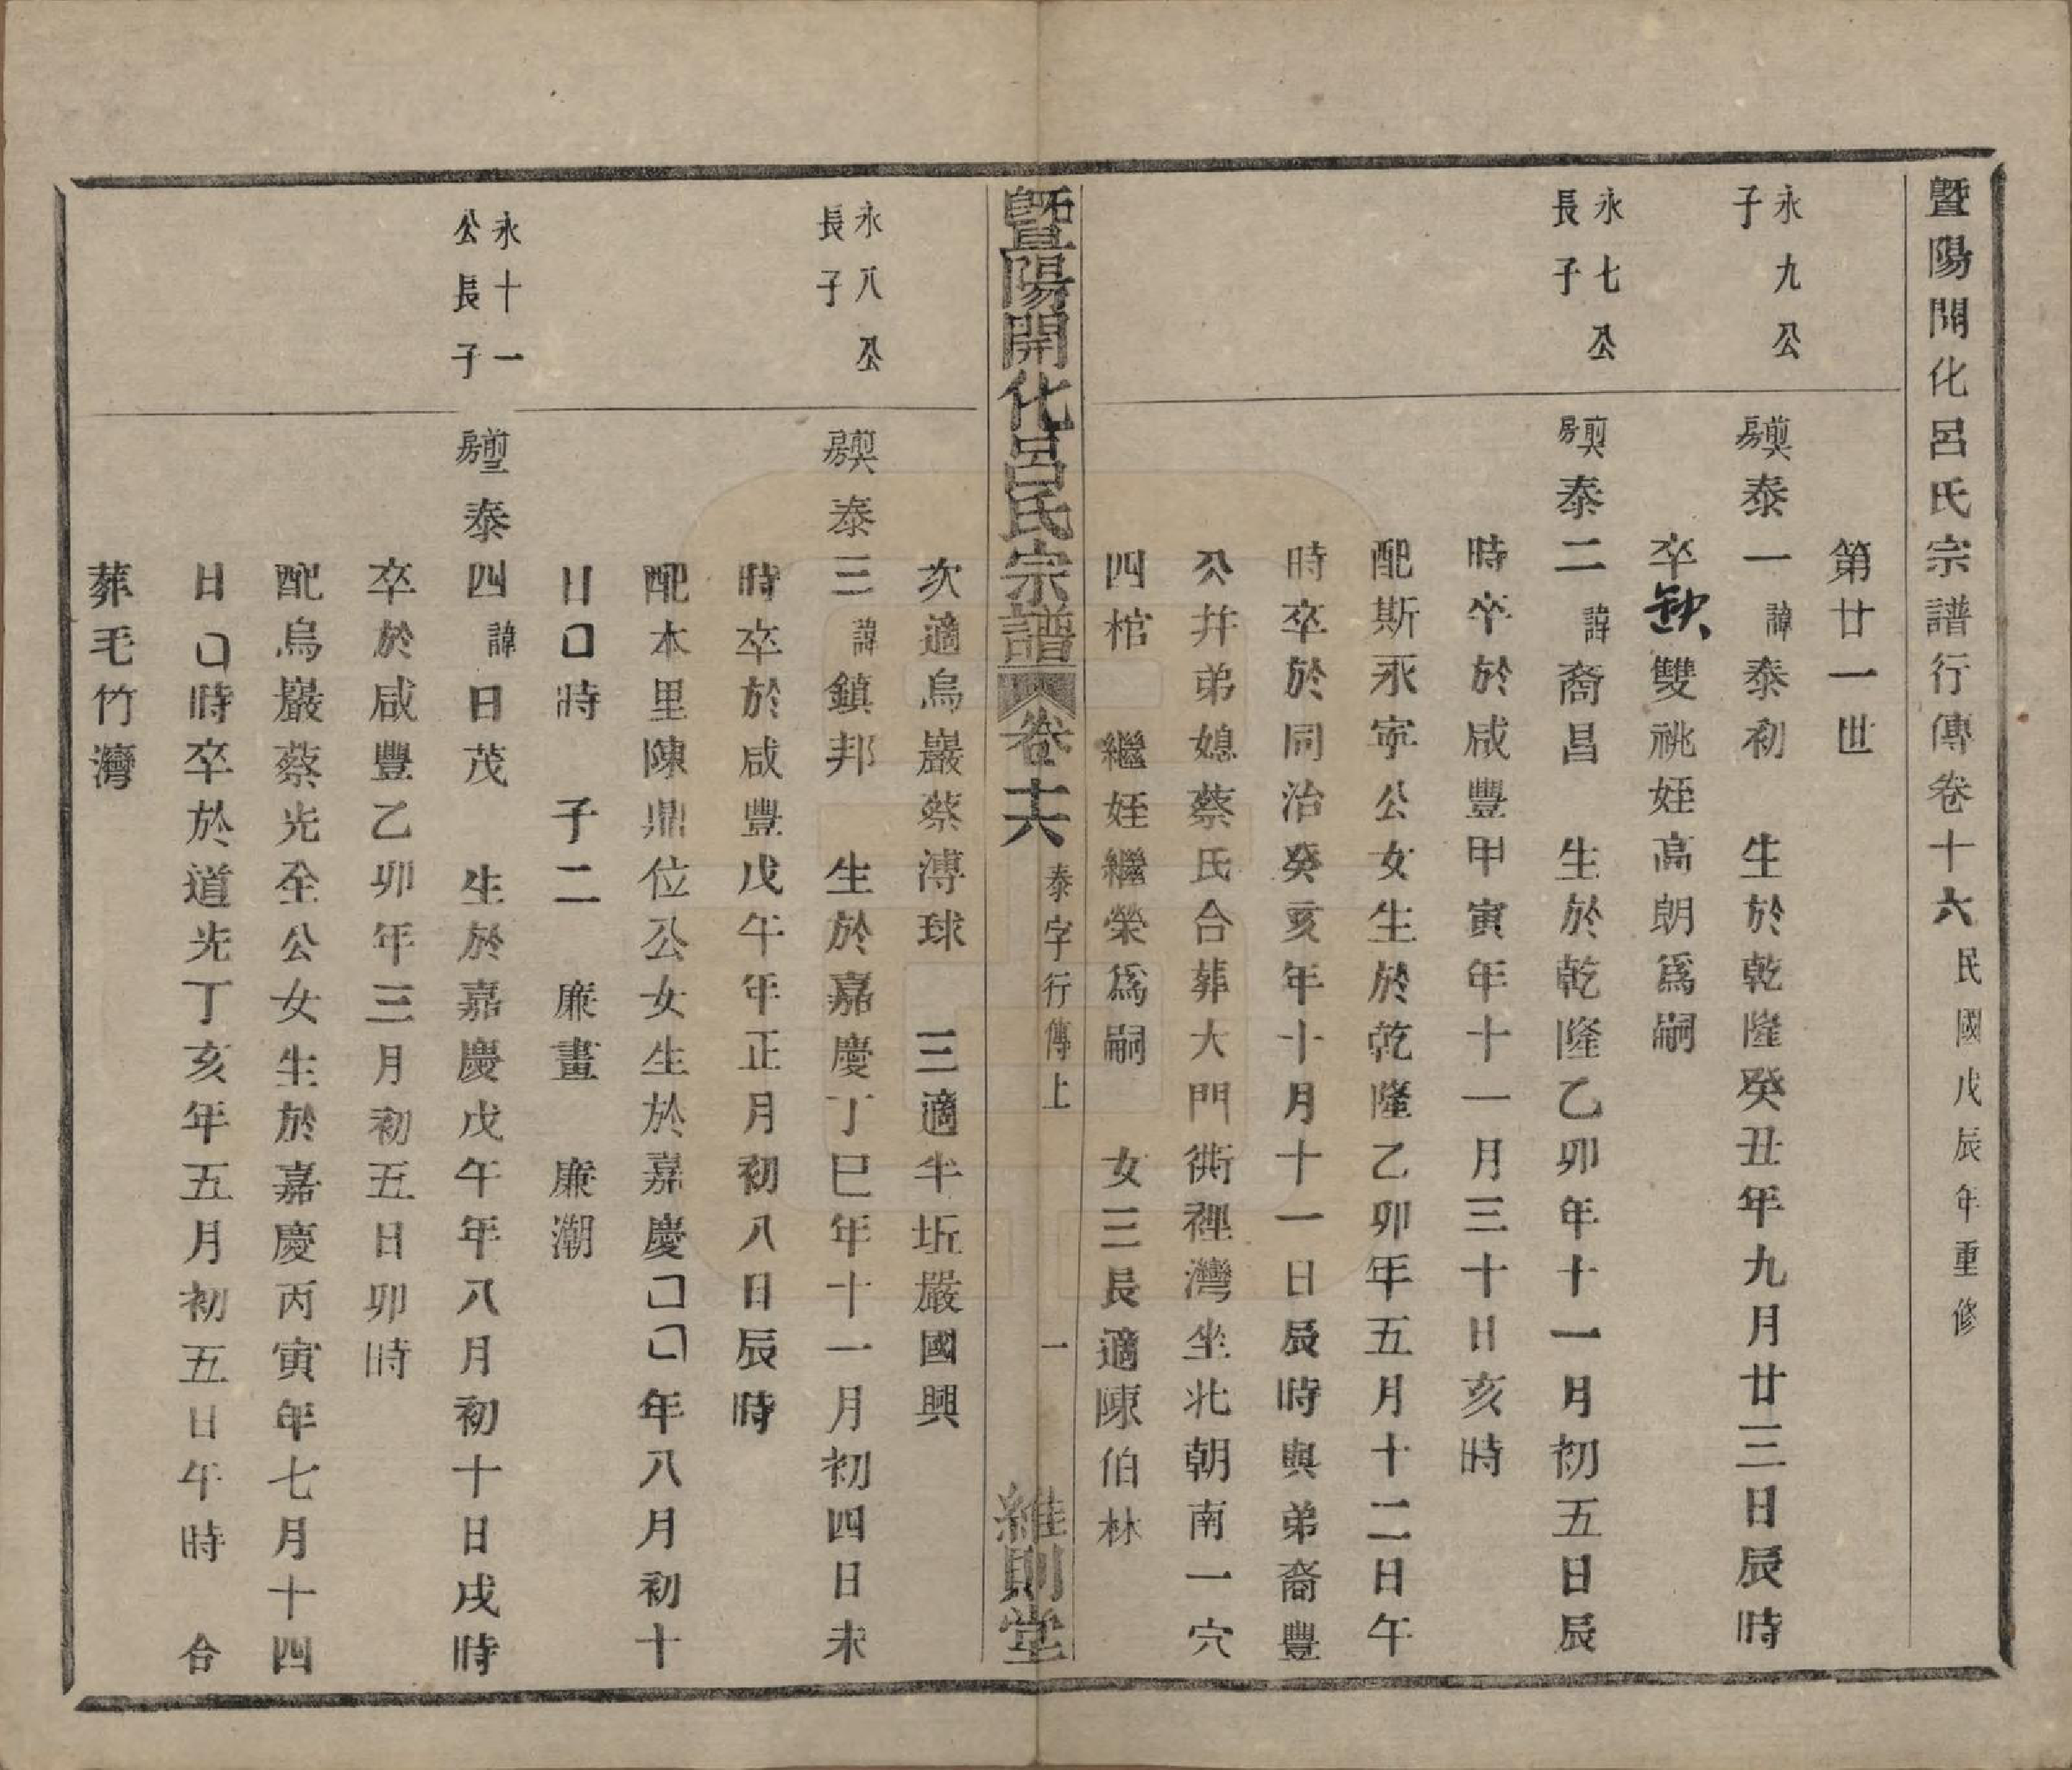 暨陽開化呂氏宗譜行傳卷十六民國戊辰年重修
第廿一世
永九公
子
巽房泰一諱泰初　生於乾隆癸丑年九月廿三日辰時
卒缺雙祧姪高朗爲嗣
永七公
長子
巽房泰二諱裔昌　生於乾隆乙卯年十一月初五日辰
時卒於咸豐甲寅年十一月三十日亥時
配斯永寧公女生於乾隆乙卯年五月十二日午
時卒於同治癸亥年十月十一日辰時與弟裔豐
公并弟媳蔡氏合葬大門衖裡灣坐北朝南一穴
四棺　繼姪繼榮爲嗣　女三長適陳伯林
暨陽開化呂氏宗譜　卷十六　泰字行傳上　一　維則堂
次適烏巖蔡溥球　三適半坵嚴國興
永八公
長子
巽房泰三諱鎮邦　生於嘉慶丁巳年十一月初四日未
時卒於咸豐戊午年正月初八日辰時
配本里陳鼎位公女生於嘉慶囗囗年八月初十
日囗時　子二　廉畫　廉潮
永十一
公長子
房泰四諱日茂　生於嘉慶戊午年八月初十日戌時
卒於咸豐乙卯年三月初五日卯時
配烏巖蔡光全公女生於嘉慶丙寅年七月十四
日囗時卒於道光丁亥年五月初五日午時　合
葬毛竹灣